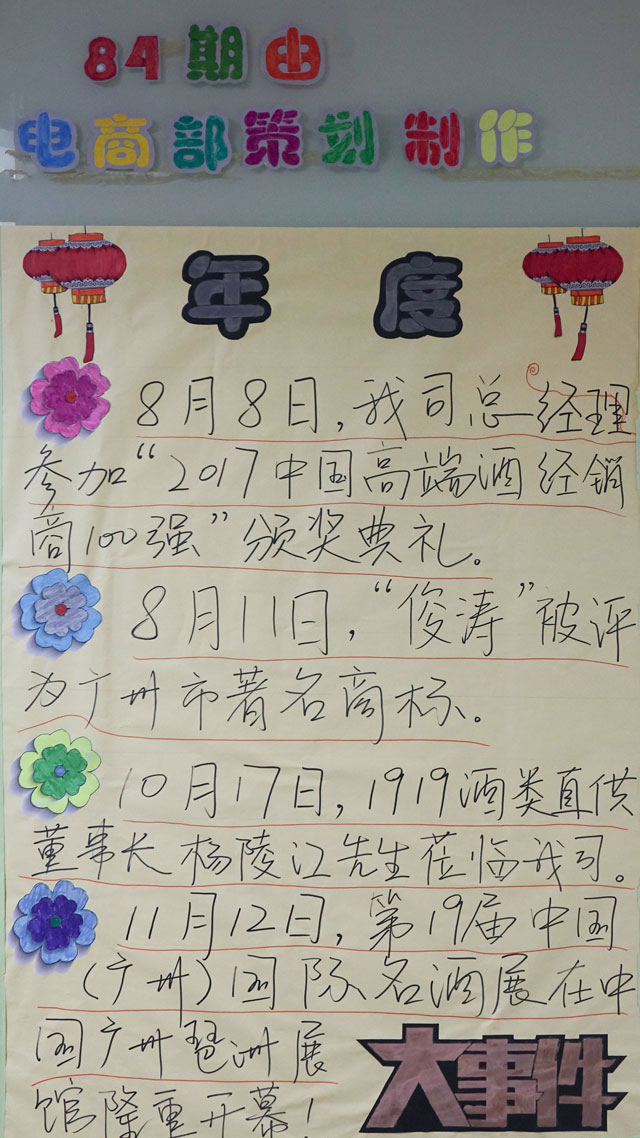 84期由
电商部策刻制作
年度
8月8日，我司总经理
参加“2017中国高端酒经销
商100强”颁奖典礼。
8月11日，“俊涛”被评
为广州市著名商标。
10月17日，1919酒类直供
董事长杨陵江先生莅临我司。
11月12日，第19届中国
（广州）国际名酒展在中
国广州琶洲展
馆隆重开幕！
大事件